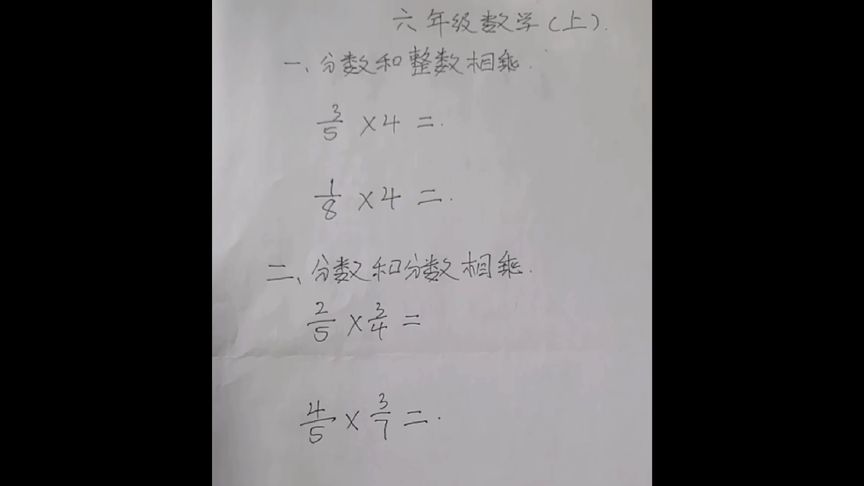 六年级数学(上).
一、分数和整数相乘.
3/5 ×4 =.
1/8 ×4 =.
二、分数和分数相乘.
2/5 × 3/4 =
4/5 × 3/7 =.